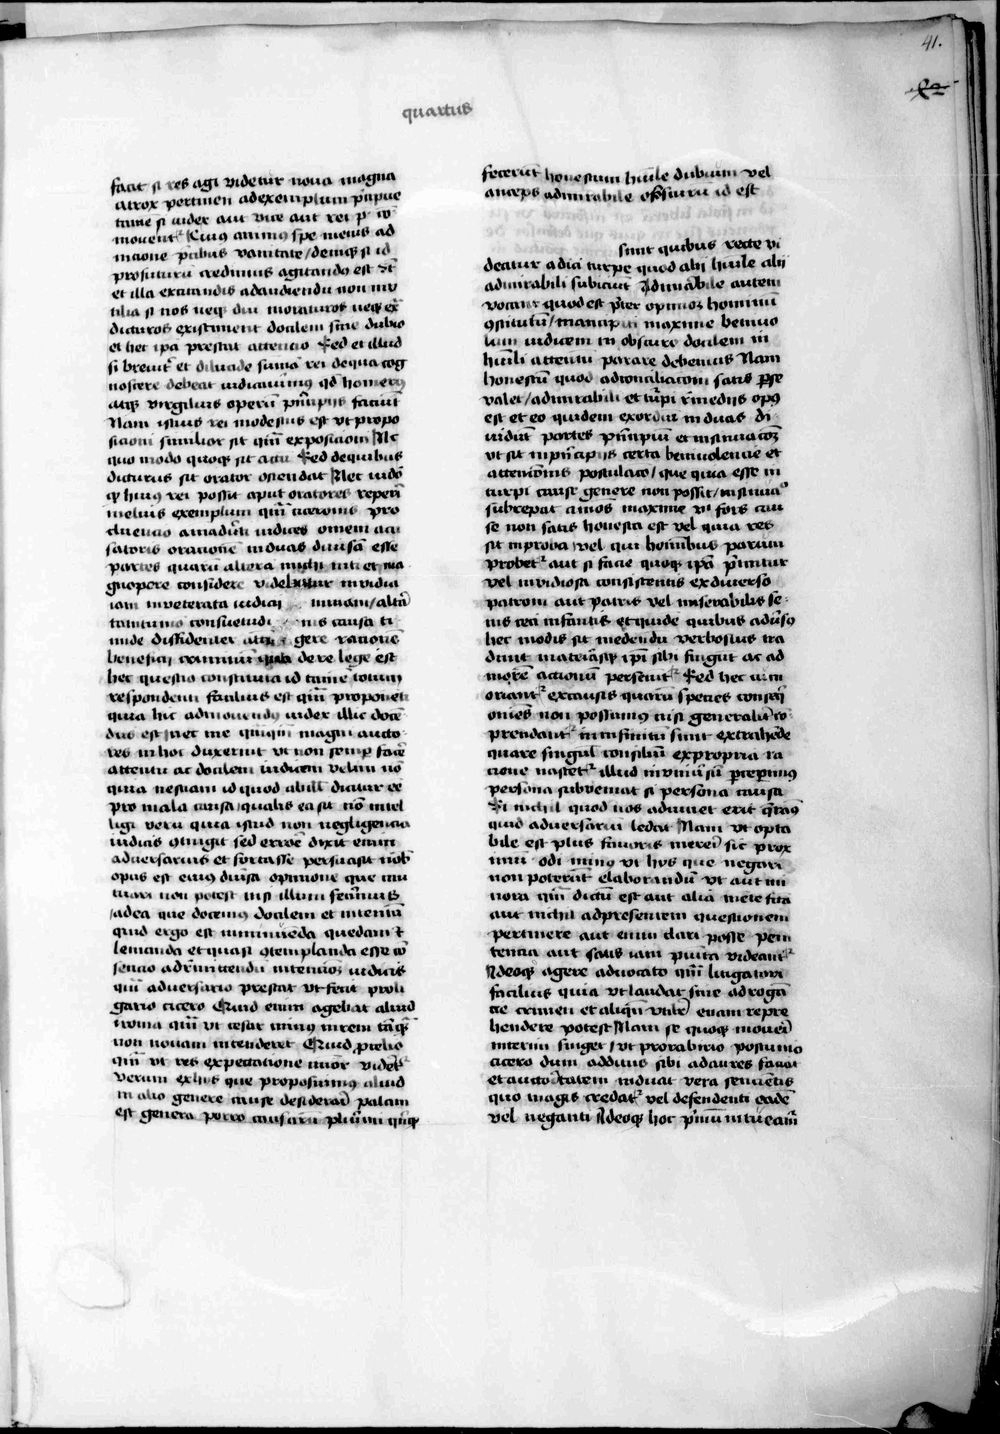 41.
quartus
facit si res agi videtur nova magna
atrox pertinens ad exemplum p̄cipue
tamē si iudex aut vice aut rei p
moventᷣ Cuius animus spe metus ad
p̄cibus vanitate / deniqꝫ si id
profuturū credimus agitandus est
et illa excitandis ad audiendū non inu
tilia si nos neqꝫ diu moraturos neqꝫ ex̄
dicturos existiment docilem sine dubio
et hec ip̄a prestat attencio Sed et illud
si brevitᷣ et dilucide sūmā rei de qua cog
noscere debeat iudicavimus qd homerꝯ
atqꝫ virgilius operū p̄ncipiis faciūt
Nam istius rei modestus est vt propo
sicioni similior sit qm̄ exposicioni Nec
quo modo quoqꝫ sit actu Sed de quibus
dicturus sit orator ostendat Nec video
ꝙ hius rei possit aput oratores reperi
melius exemplum qm̄ ciceronis pro
cluencio iudices omem acu
satoris orationē in duas divisā esse
partes quarū altera michi niti et ma
gnopere considere videbatur invidia
iam inveterata altā
timide diffidenter gere rationē
beneficii criminū de re lege est
hec questio constituta id tamē totum
respondenti facilius est qm̄ proponeti
quia hic admonendꝯ iudex illic doce
dus est Nec me quamquam magni aucto
res in hoc duxerint vt non semꝑ facē
attentū ac docilem iudicem velim nō
quia nesciam id quod ab illis dicitur
pro mala causa qualis ea sit nō intel
ligi verū quia istud non negligencia
iudicis ꝯtingit sed errore dixit enim
adversarius et fortasse persuasit nob̄
opus est eius diversa opinione que mu
tari non potest nisi illum
ad ea que docemus docilem et intentū
quid ergo est imminuēda quedam
levanda et quasi ꝯtemplanda esse cō
sentio ad remittendū intencionē iudicis
qm̄ adversario prestat vt fecit pro li
gario cicero Quid enim agebat aliud
ironia qm̄ vt cesar minus in rem tāqꝫ
non novam intenderet Quid ꝓ celio
qm̄ vt res expectatione minor viderēᷣ
Verum ex hiis que proposuimus aliud
in alio genere cause desiderari palam
est genera porro causarū plurimi qnqꝫ
fecerūt honestum hūile dubium vel
anceps admirabile obscurū id est
sunt quibus recte vi
deatur adici turpe quod alii hūile alii
admirabili subiciūt Admirabile autem
vocant quod est p̄ter opinionē hominū
ꝯstitutū / in ancipiti maxime benivo
lum iudicem in obscuro docilem in
hūili attentū parare debemus Nam
honestū quod ad conciliacom satis per se
valet / admirabili et turpi remediis opꝯ
est et eo quidem exordiū in duas di
vidūt partes p̄ncipiū et insinuacōē
vt sit in p̄ncipiis certa benivolencie et
attencionis postulaco / que quia esse in
turpi cause genere non possit / insinuaᵒ
subrepat aīos maxime vbi frons cau
se non satis honesta est vel quia res
sit improba vel qui hominibus parum
probetᷣ aut si facie quoqꝫ ip̄a p̄mitur
vel invidiosa consistentis ex diverso
patroni aut patris vel miserabilis se
nis ceci infantis et quidē quibus adūsꝯ
hec modis sit medendū verbosius tra
dunt materiasqꝫ ip̄i sibi fingūt ac ad
morē actionū persecūtᷣ Sed hec cum
oriantᷣ ex causis quarū species conseq̄
omnes non possumus nisi generaliter cō
prendantᷣ in infinitū sunt extrahēde
quare singul consiliū ex propria ra
cione nascetᷣ illud in universū p̄cepimus
persona subveniat si persona causa
Si nichil quod nos adiuvet erit q̄ramꝯ
quid adversariū ledat Nam vt opta
bile est plus favoris mereri sic prox
imū odii minꝯ vt hiis que negari
non poterūt elaborandū vt aut mi
nora qm̄ dictū est aut alia mēte fca
aut nichil ad presentem questionem
pertinere aut emendari posse peni
tencia aut satis iam punita videantᷣ
Ideoqꝫ agere advocato qm̄ litigatori
facilius quia vt laudat sine adroga
tie crimen et aliqn̄ vtilitᷣ etiam repre
hendere potest Nam se quoqꝫ moveri
interim finget / vt pro rabirio postumo
cicero dum aditus sibi ad aures faciat
et auctoritatem induat vera sencientis
quo magis credatᷣ vel defendenti eadē
vel neganti Ideoqꝫ hoc p̄mū intueam̄